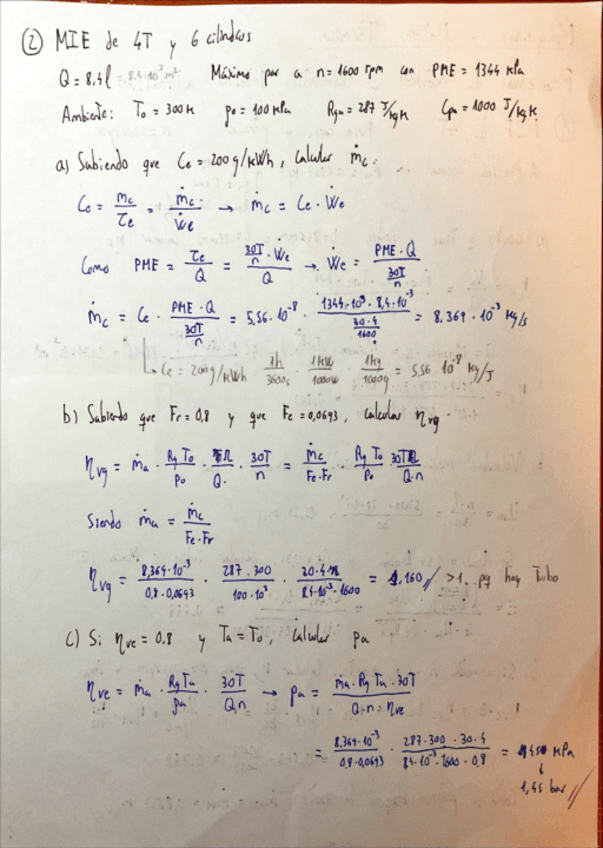 ② MIE de 4T y 6 cilindros
Q = 8,4 l = 8,4·10⁻³ m³ Máximo par a n = 1600 rpm con PME = 1344 kPa
Ambiente: T₀ = 300 K p₀ = 100 kPa Rga = 287 J/kgK Cpa = 1000 J/kgK
a) Sabiendo que Ce = 200 g/kWh, calcular ṁc.
Ce = mc/τe = ṁc/Ẇe → ṁc = Ce · Ẇe
Como PME = τe/Q = (30T/n · Ẇe)/Q → Ẇe = (PME · Q)/(30T/n)
ṁc = Ce · (PME · Q)/(30T/n) = 5,56·10⁻⁸ · (1344·10³ · 8,4·10⁻³)/(30·4/1600) = 8,369·10⁻³ kg/s
↳ Ce = 200 g/kWh · 1h/3600s · 1kW/1000W · 1kg/1000g = 5,56 10⁻⁸ kg/J
b) Sabiendo que Fr = 0,8 y que Fe = 0,0693, calcular ηvg.
ηvg = ṁa · (Rg T₀)/p₀ · /Q · 30T/n = ṁc/(Fe·Fr) · (Rg T₀)/p₀ · 30T/(Q·n)
Siendo ṁa = ṁc/(Fe·Fr)
ηvg = 8,369·10⁻³/(0,8·0,0693) · (287·300)/(100·10³) · (30·4)/(8,4·10⁻³·1600) = 1,160 // >1, pq hay Turbo
c) Si ηve = 0,8 y Ta = T₀, calcular pa
ηve = ṁa · (Rg Ta)/pa · 30T/(Q·n) → pa = (ṁa · Rg Ta · 30T)/(Q·n·ηve)
= 8,369·10⁻³/(0,8·0,0693) · (287·300·30·4)/(8,4·10⁻³·1600·0,8) = kPa
↓
1,45 bar //